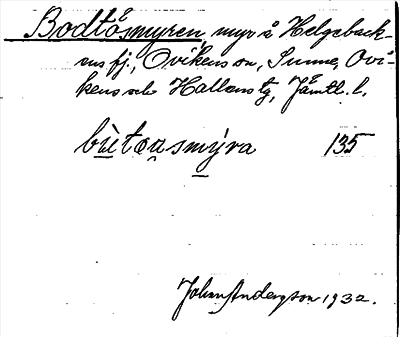 Bodtåsmyren myr å Helgeback-
ens fj., Ovikens sn, Sunne, Ovi-
kens och Hallens tg, Jämtl. l.
bùtαusmýra 135
Johan Anderson 1932.